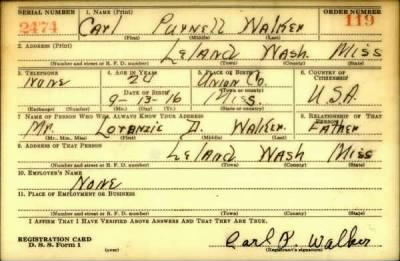 SERIAL NUMBER 1. NAME (Print) ORDER NUMBER
2474 Carl Purnell Walker 119
(First) (Middle) (Last)
2. ADDRESS (Print)
Leland Wash Miss
(Number and street or R. F. D. number) (Town) (County) (State)
3. TELEPHONE 4. AGE IN YEARS 5. PLACE OF BIRTH 6. COUNTRY OF CITIZENSHIP
None 24 Union Co.
DATE OF BIRTH
9-13-16 Miss. U.S.A.
(Exchange) (Number) (Mo.) (Day) (Yr.) (State or country)
7. NAME OF PERSON WHO WILL ALWAYS KNOW YOUR ADDRESS 8. RELATIONSHIP OF THAT PERSON
Mr. D. Walker. Father
(Mr., Mrs., Miss) (First) (Middle) (Last)
9. ADDRESS OF THAT PERSON
Leland Wash Miss
(Number and street or R. F. D. number) (Town) (County) (State)
10. EMPLOYER'S NAME
None
11. PLACE OF EMPLOYMENT OR BUSINESS
(Number and street or R. F. D. number) (Town) (County) (State)
I AFFIRM THAT I HAVE VERIFIED ABOVE ANSWERS AND THAT THEY ARE TRUE.
REGISTRATION CARD
D. S. S. Form 1 (over) Carl P. Walker
(Registrant's signature)